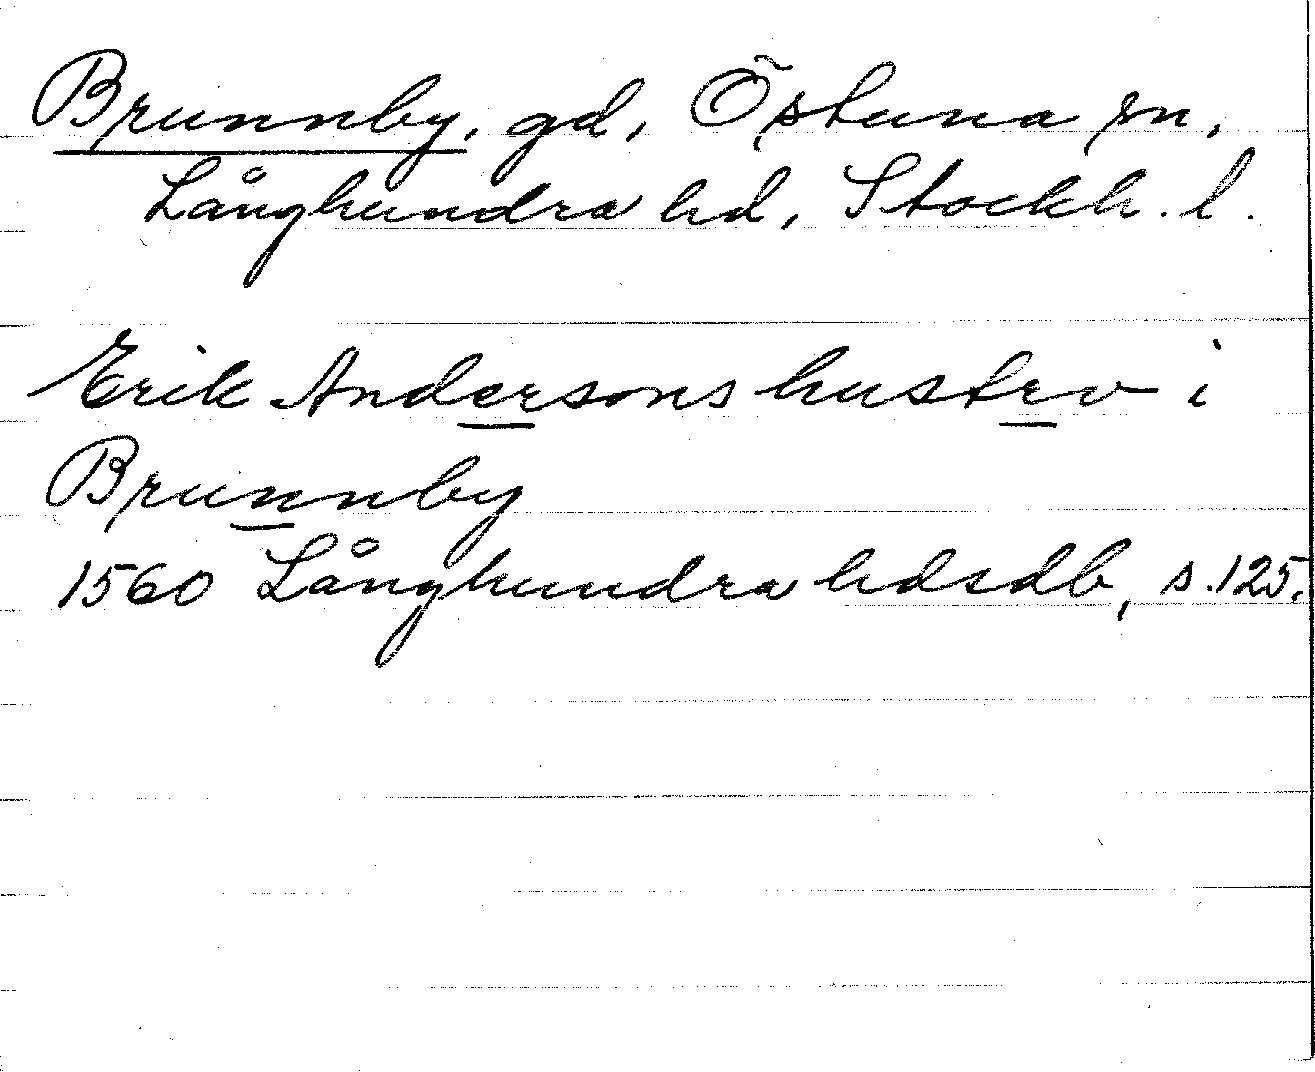 Brunnby, gd, Östuna sn,
Långhundra hd, Stockh. l.
Erik Andersons hustrv i
Brunnby
1560 Långhundra hdsdb, s. 125.